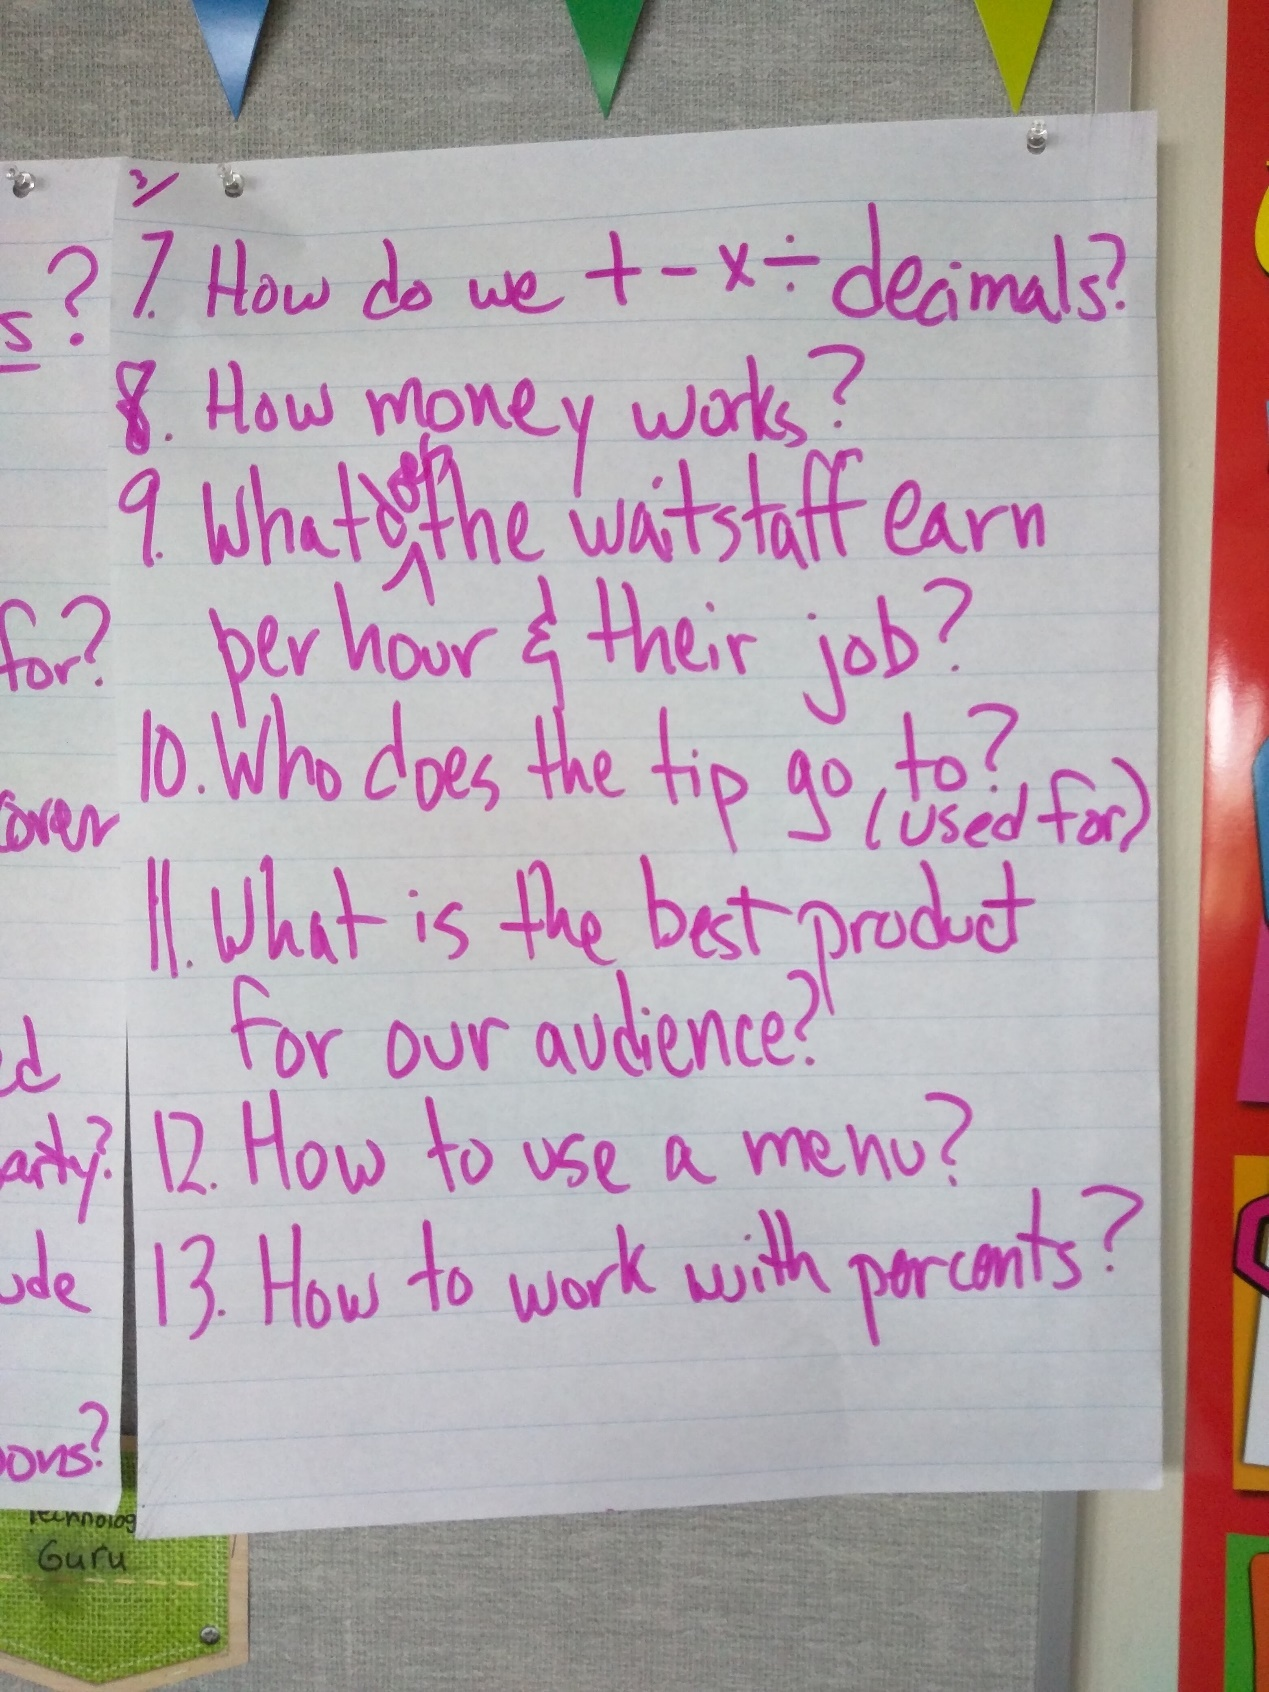 s?
for?
cover
ed
arty?
ude
oons?
3/
7. How do we + - x ÷ decimals?
8. How money works?
9. What does the waitstaff earn
per hour & their job?
10. Who does the tip go to?
(used for)
11. What is the best product
for our audience?
12. How to use a menu?
13. How to work with percents?
Technolog
Guru